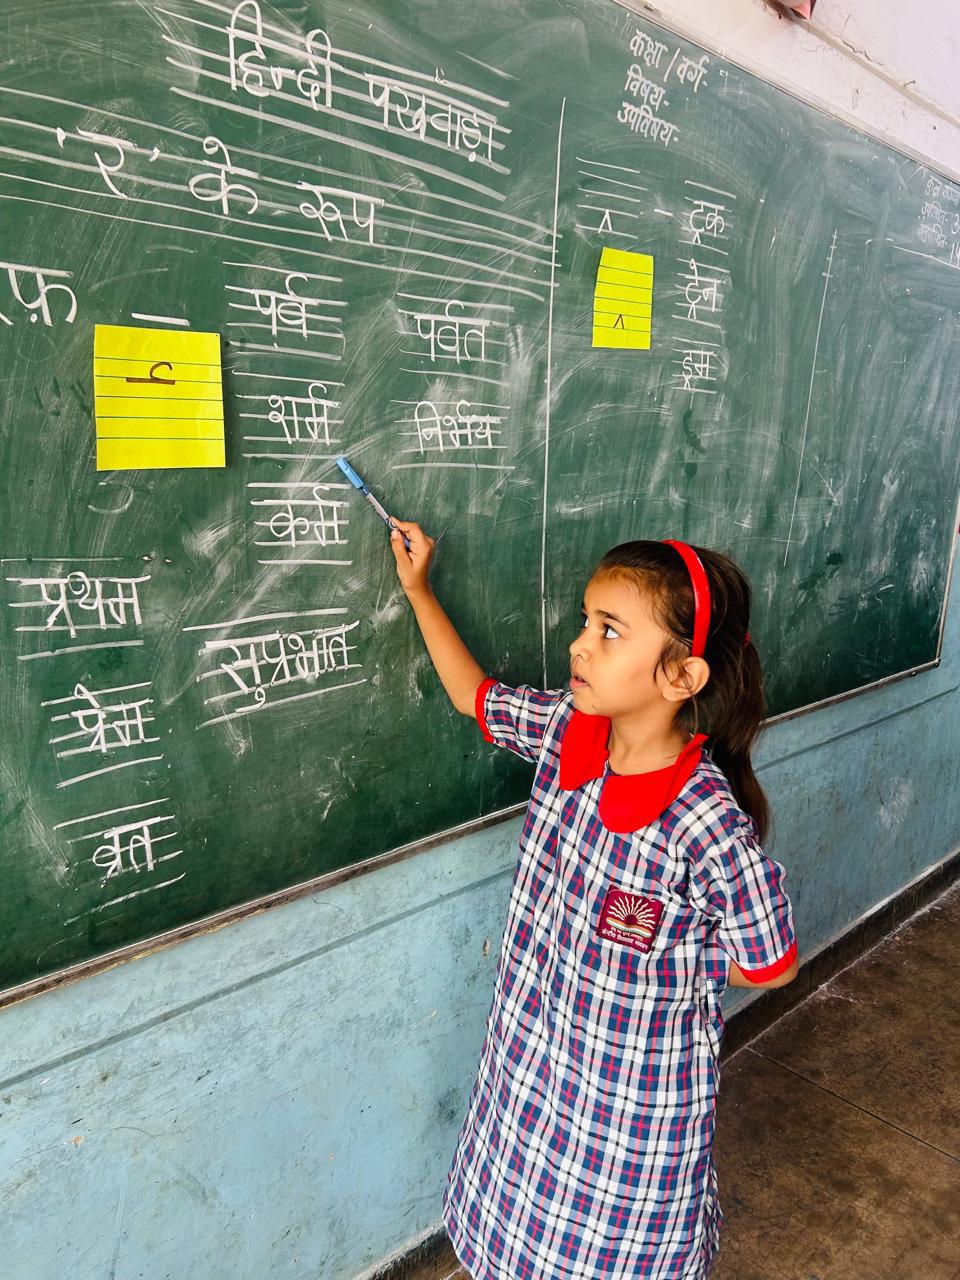 हिन्दी पखवाड़ा
'र' के रूप
रेफ़
पर्व
पर्वत
शर्म
निर्भय
कर्म
प्रथम
सुप्रभात
प्रेम
व्रत
कक्षा / वर्ग-
विषय-
उपविषय-
^ - ट्रक
ट्रेन
^
ड्रम
कुल संख्या
उपस्थित-
अनुपस्थित-
केन्द्रीय विद्यालय संगठन